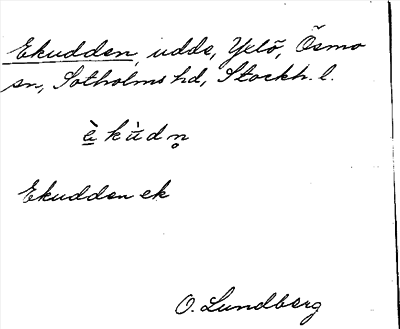 Ekudden, udde, Yxlö, Ösmo
sn, Sotholms hd, Stockh. l.
è kù d n̥
Ekudden ek
O. Lundberg